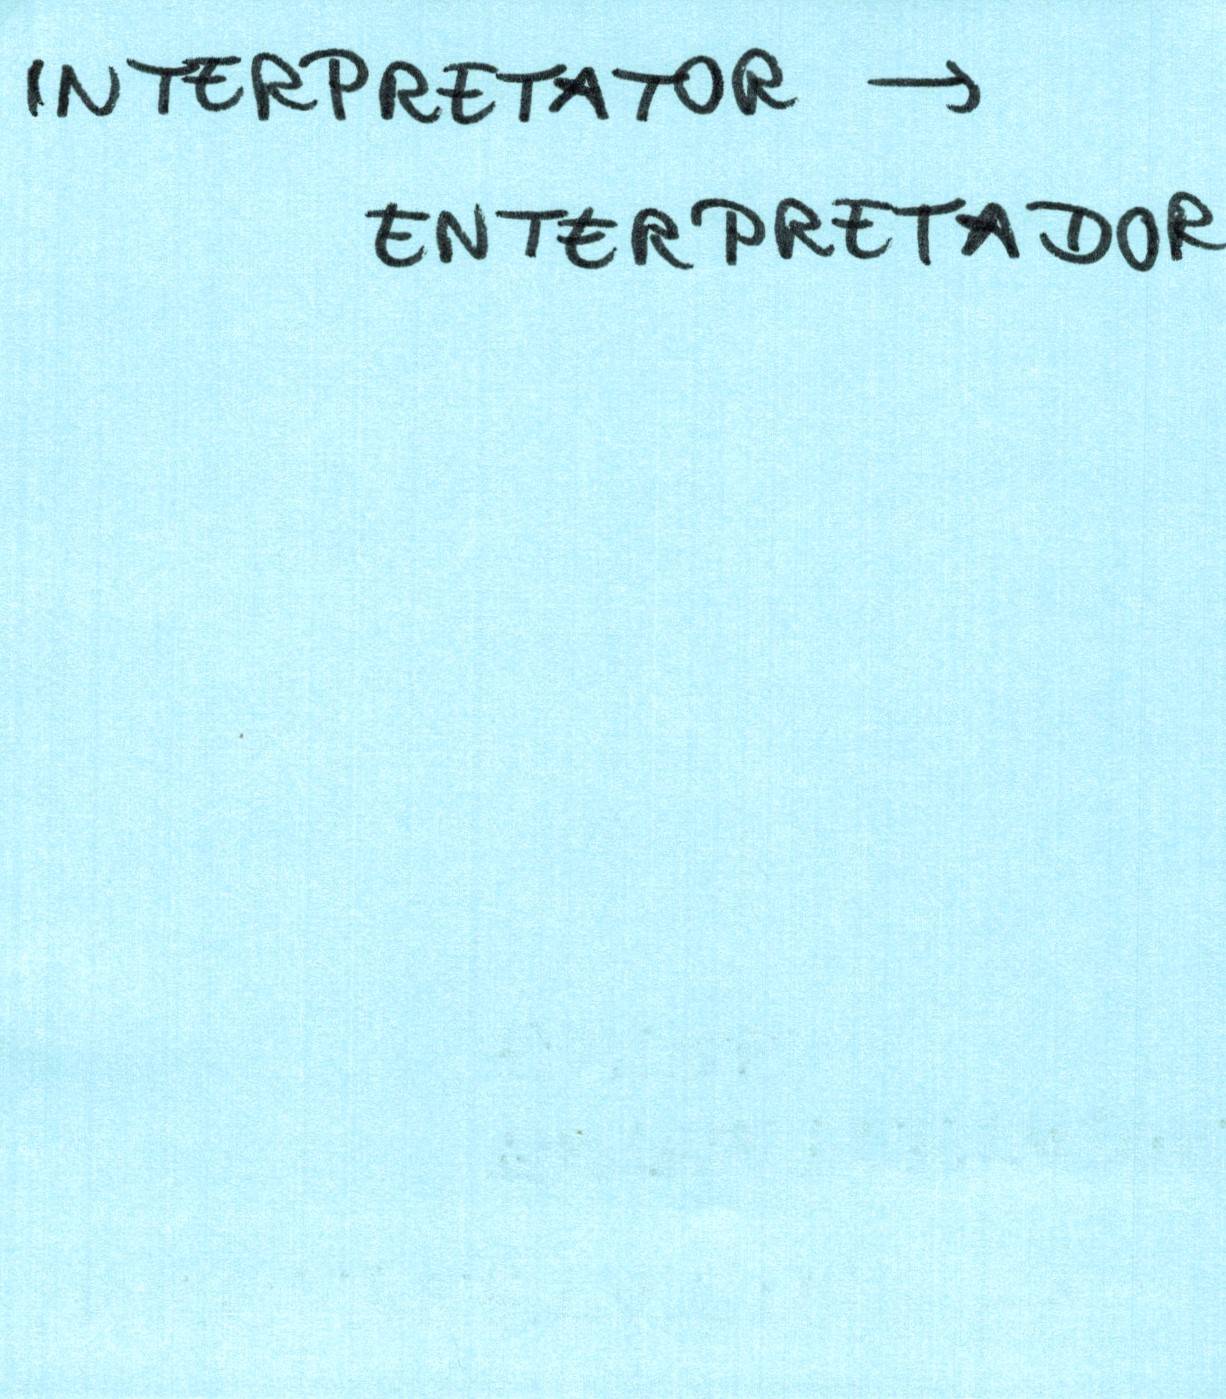 INTERPRETATOR →
ENTERPRETADOR